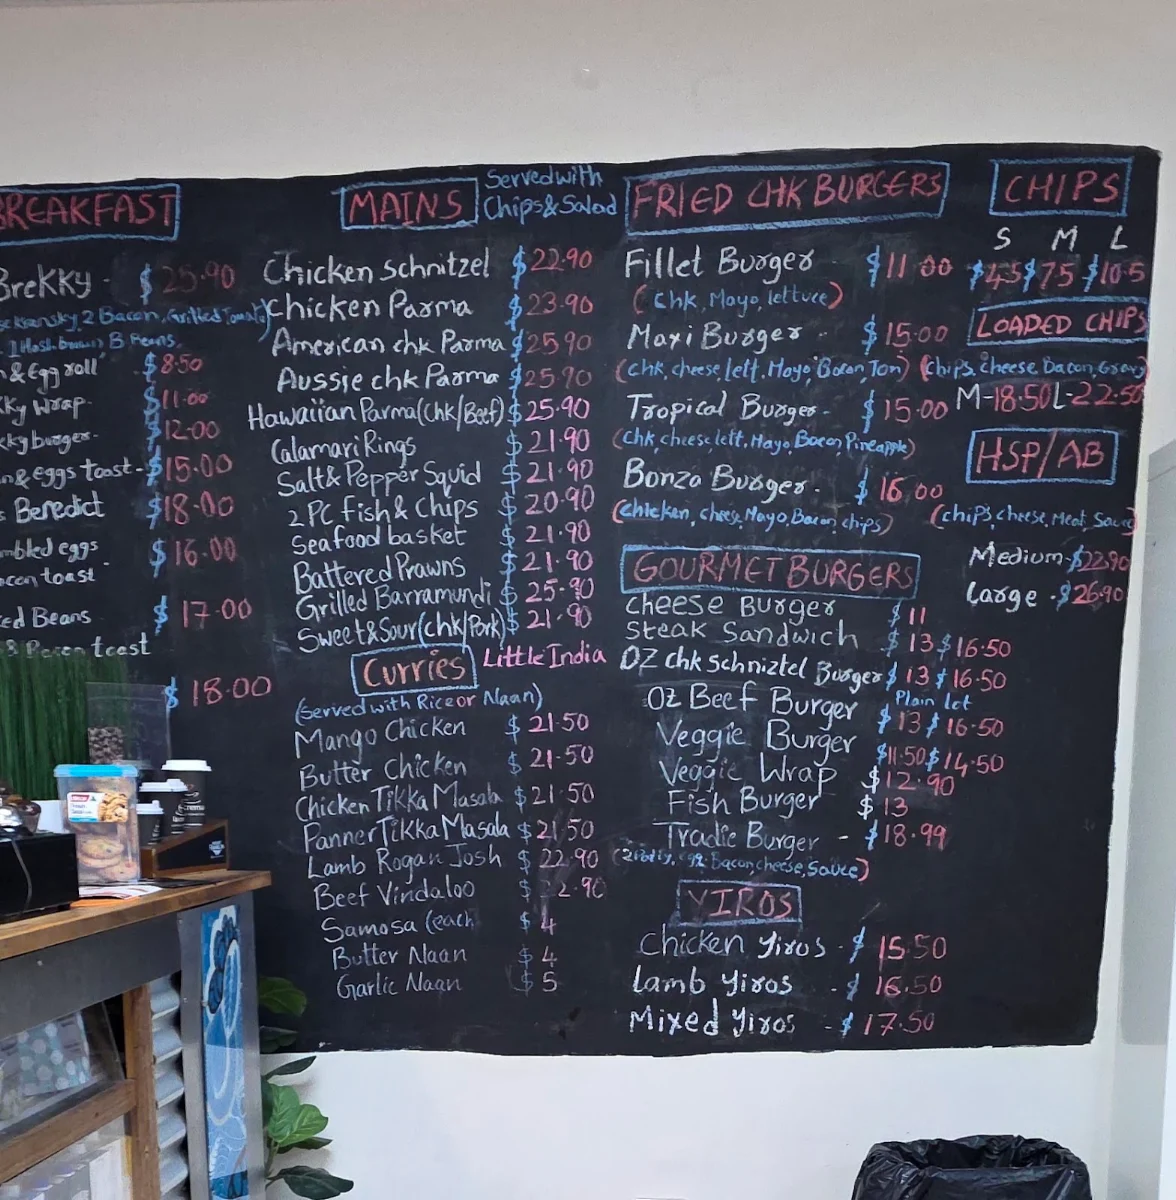 BREAKFAST
BreKKy - $25.90
2 Bacon, Grilled Tomato)
1 Hash brown) B Beans
& Egg roll $8.50
Wrap - $11.00
burger - $12.00
& eggs toast - $15.00
Benedict $18.00
eggs $16.00
toast
Beans $17.00
& Bacon toast
$18.00
MAINS Served with
Chips & Salad
Chicken Schnitzel $22.90
Chicken Parma $23.90
American chk Parma $25.90
Aussie chk Parma $25.90
Hawaiian Parma (Chk/Beef) $25.90
Calamari Rings $21.90
Salt & Pepper Squid $21.90
2 PC Fish & Chips $20.90
Seafood basket $21.90
Battered Prawns $21.90
Grilled Barramundi $25.90
Sweet & Sour (Chk/Pork) $21.90
Curries Little India
(Served with Rice or Naan)
Mango Chicken $21.50
Butter Chicken $21.50
Chicken Tikka Masala $21.50
Panner Tikka Masala $21.50
Lamb Rogan Josh $22.90
Beef Vindaloo $22.90
Samosa (each $4
Butter Naan $4
Garlic Naan $5
FRIED CHK BURGERS
Fillet Burger $11.00
(Chk, Mayo, lettuce)
Maxi Burger - $15.00
(Chk, cheese, lett, Mayo, Bacon, Tom)
Tropical Burger - $15.00
(Chk, cheese, lett, Mayo, Bacon, Pineapple)
Bonza Burger - $16.00
(Chicken, chees, Mayo, Bacon, chips)
GOURMET BURGERS
Cheese Burger $11
Steak Sandwich $13 $16.50
OZ chk schniztel Burger $13 $16.50
Plain lot
Oz Beef Burger $13 $16.50
Veggie Burger $11.50 $14.50
Veggie Wrap $12.90
Fish Burger $13
Tradie Burger - $18.99
(2 Patty, egg, Bacon, cheese, Sauce)
YIROS
Chicken Yiros - $15.50
Lamb Yiros - $16.50
Mixed Yiros - $17.50
CHIPS
S M L
$4.5 $7.5 $10.5
LOADED CHIPS
(Chips, Cheese, Bacon, Gravy)
M-18.50 L-22.50
HSP/AB
(chips, cheese, Meat, Sauce)
Medium - $22.90
Large - $26.90